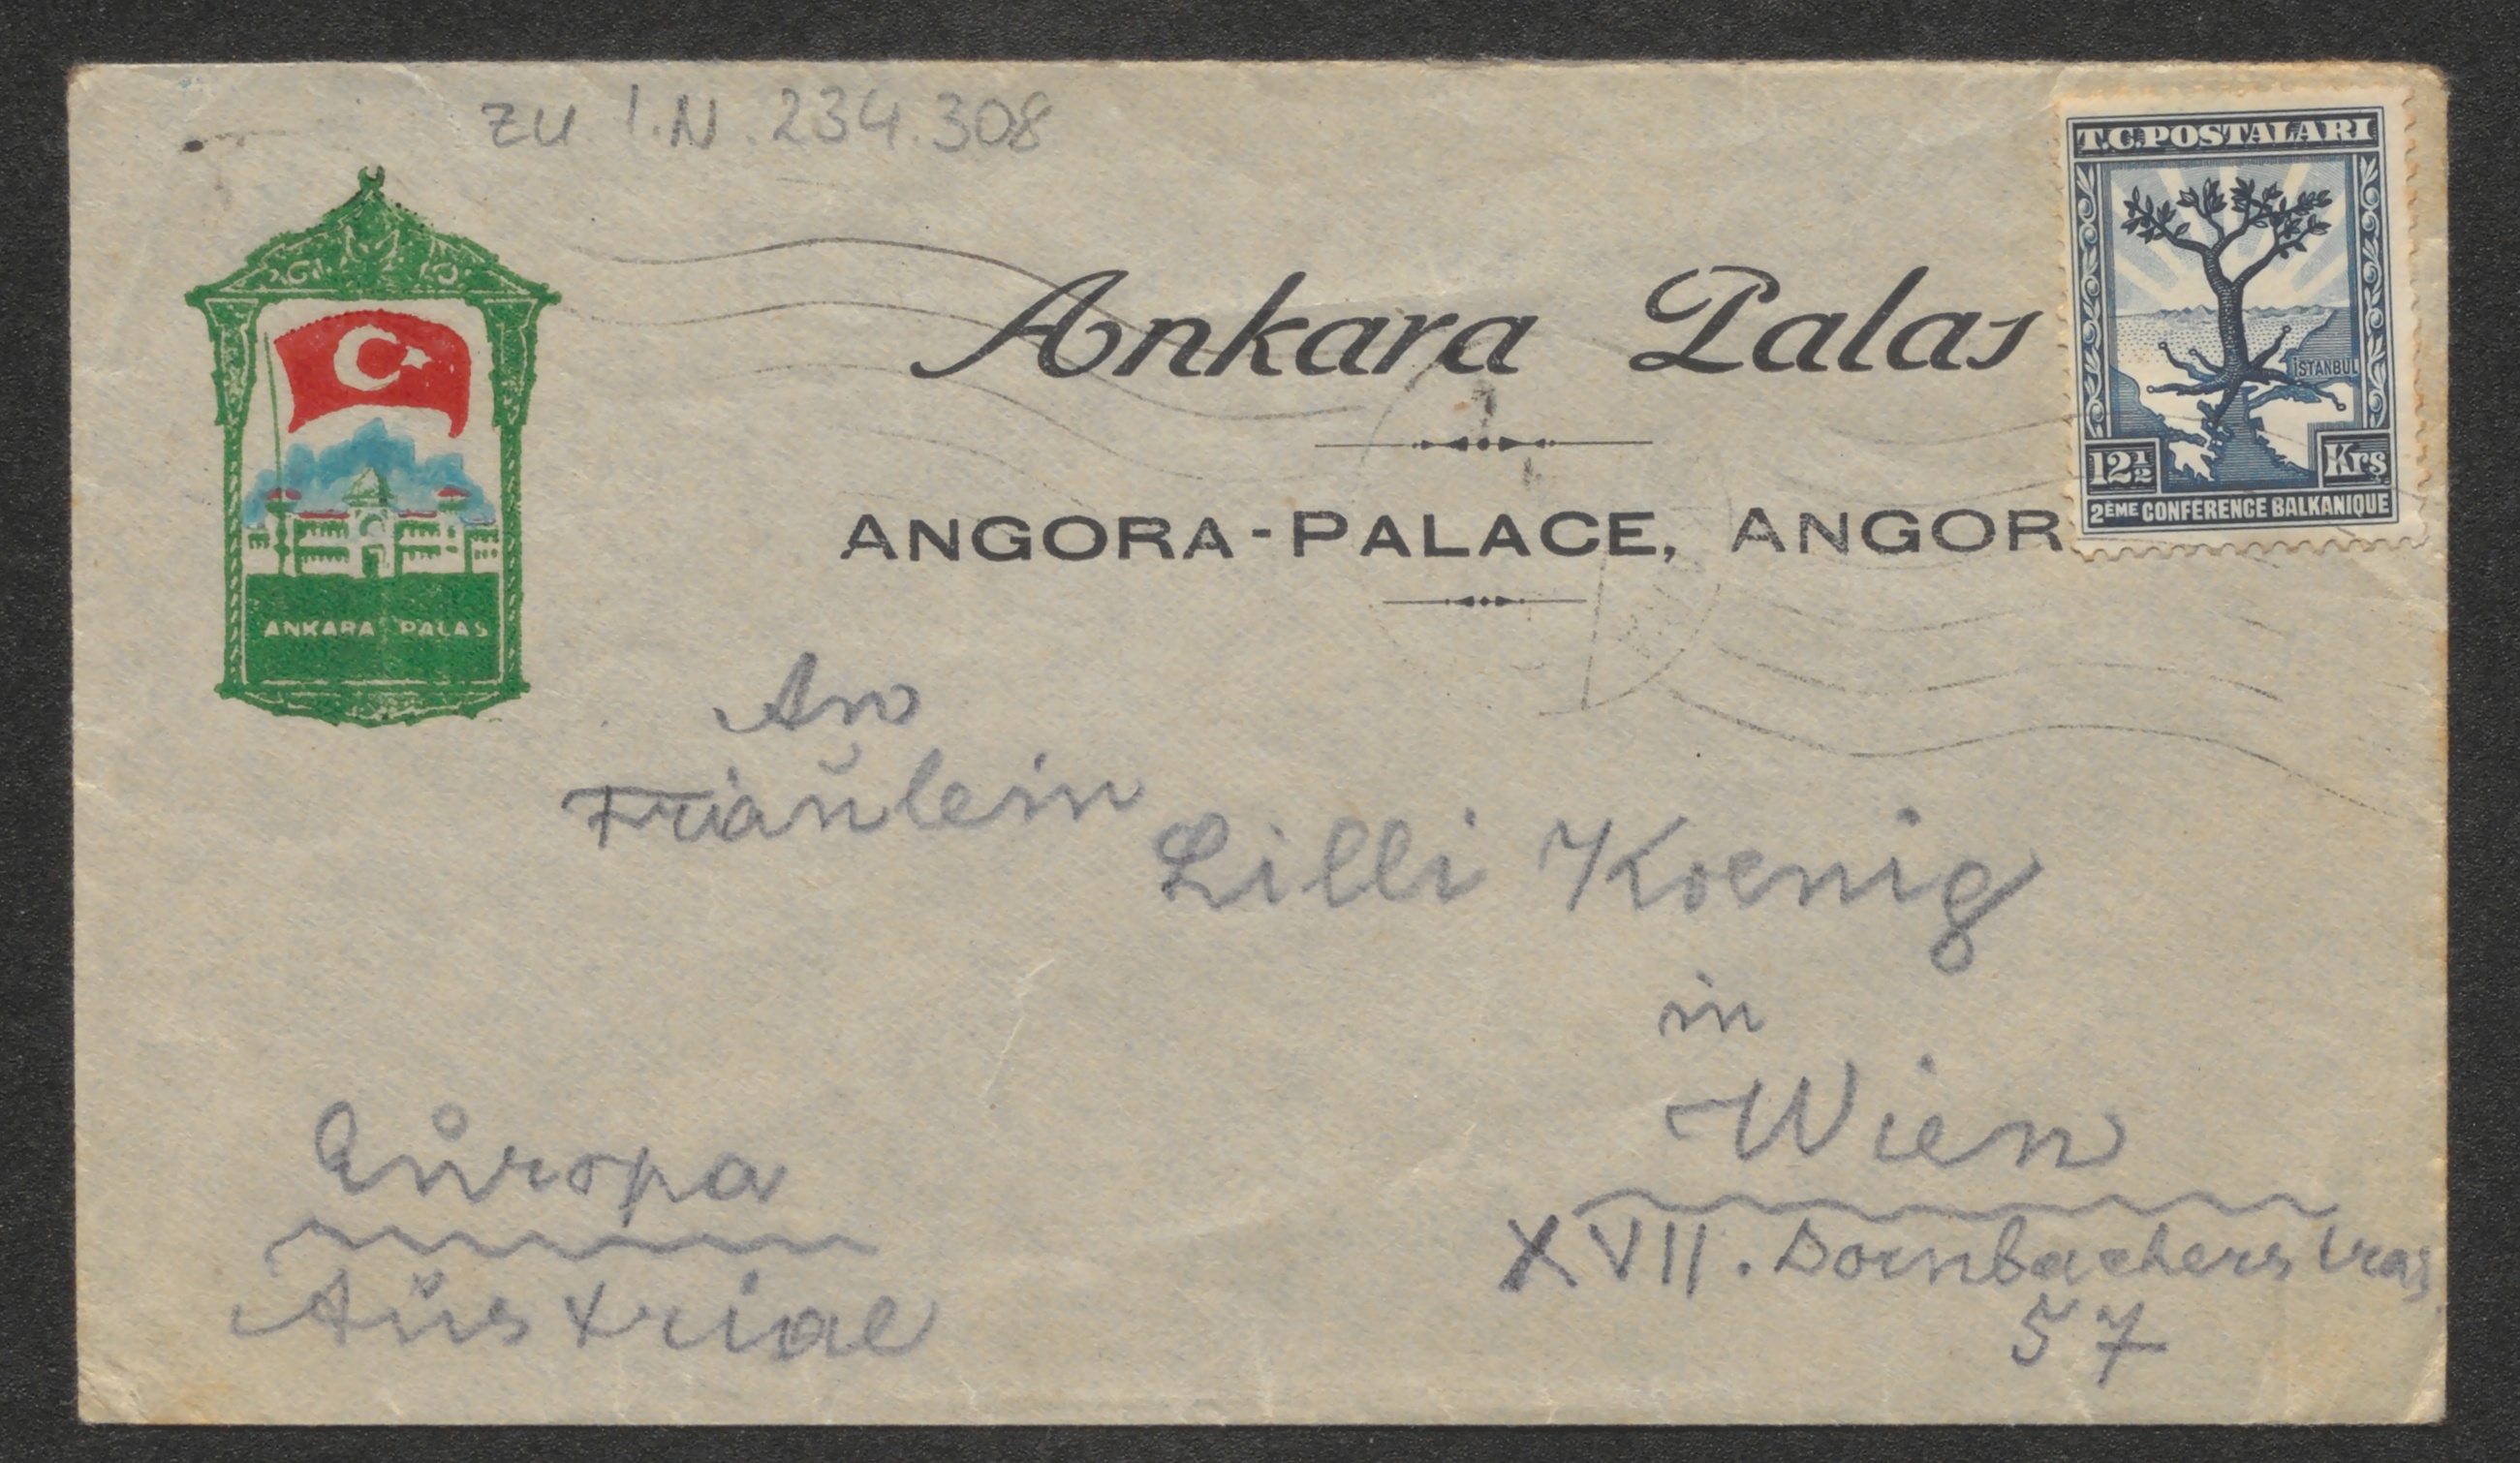 zu I.N. 234.308
T.C. POSTALARI
İSTANBUL
12½ Krs
2ÈME CONFERENCE BALKANIQUE
Ankara Palas
ANGORA-PALACE, ANGOR
ANKARA PALAS
An
Fräulein
Lilli Koenig
in
Wien
XVII. Dornbacherstras
57
Europa
Austriae